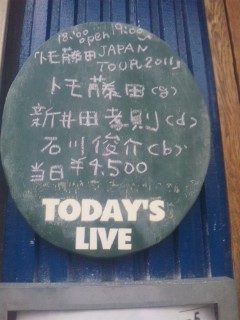 18:00 open 19:00s
トモ藤田JAPAN
TOUR2011
トモ藤田(g)
新井田孝則(d)
石川俊介(b)
当日¥4,500
TODAY'S
LIVE
5